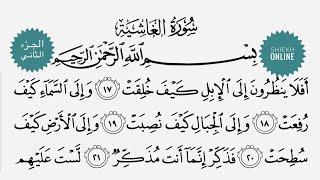 سُورَةُ الْغَاشِيَةِ
الجزء
الثاني
SHIEKH
ONLINE
بِسْمِ اللَّهِ الرَّحْمَٰنِ الرَّحِيمِ
أَفَلَا يَنظُرُونَ إِلَى الْإِبِلِ كَيْفَ خُلِقَتْ ١٧ وَإِلَى السَّمَاءِ كَيْفَ
رُفِعَتْ ١٨ وَإِلَى الْجِبَالِ كَيْفَ نُصِبَتْ ١٩ وَإِلَى الْأَرْضِ كَيْفَ
سُطِحَتْ ٢٠ فَذَكِّرْ إِنَّمَا أَنتَ مُذَكِّرٌ ٢١ لَّسْتَ عَلَيْهِم